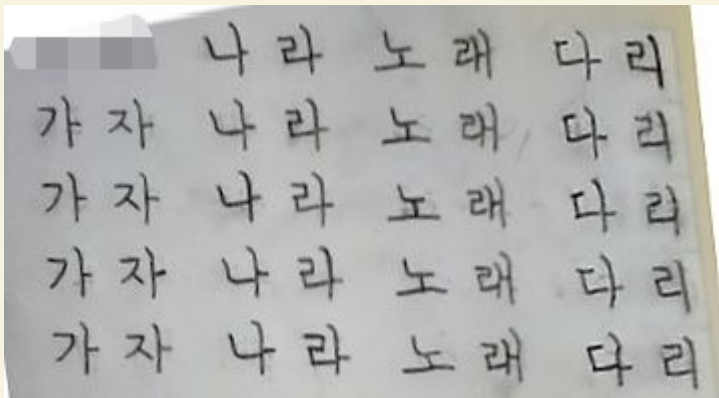 나라 노래 다리
가자 나라 노래 다리
가자 나라 노래 다리
가자 나라 노래 다리
가자 나라 노래 다리